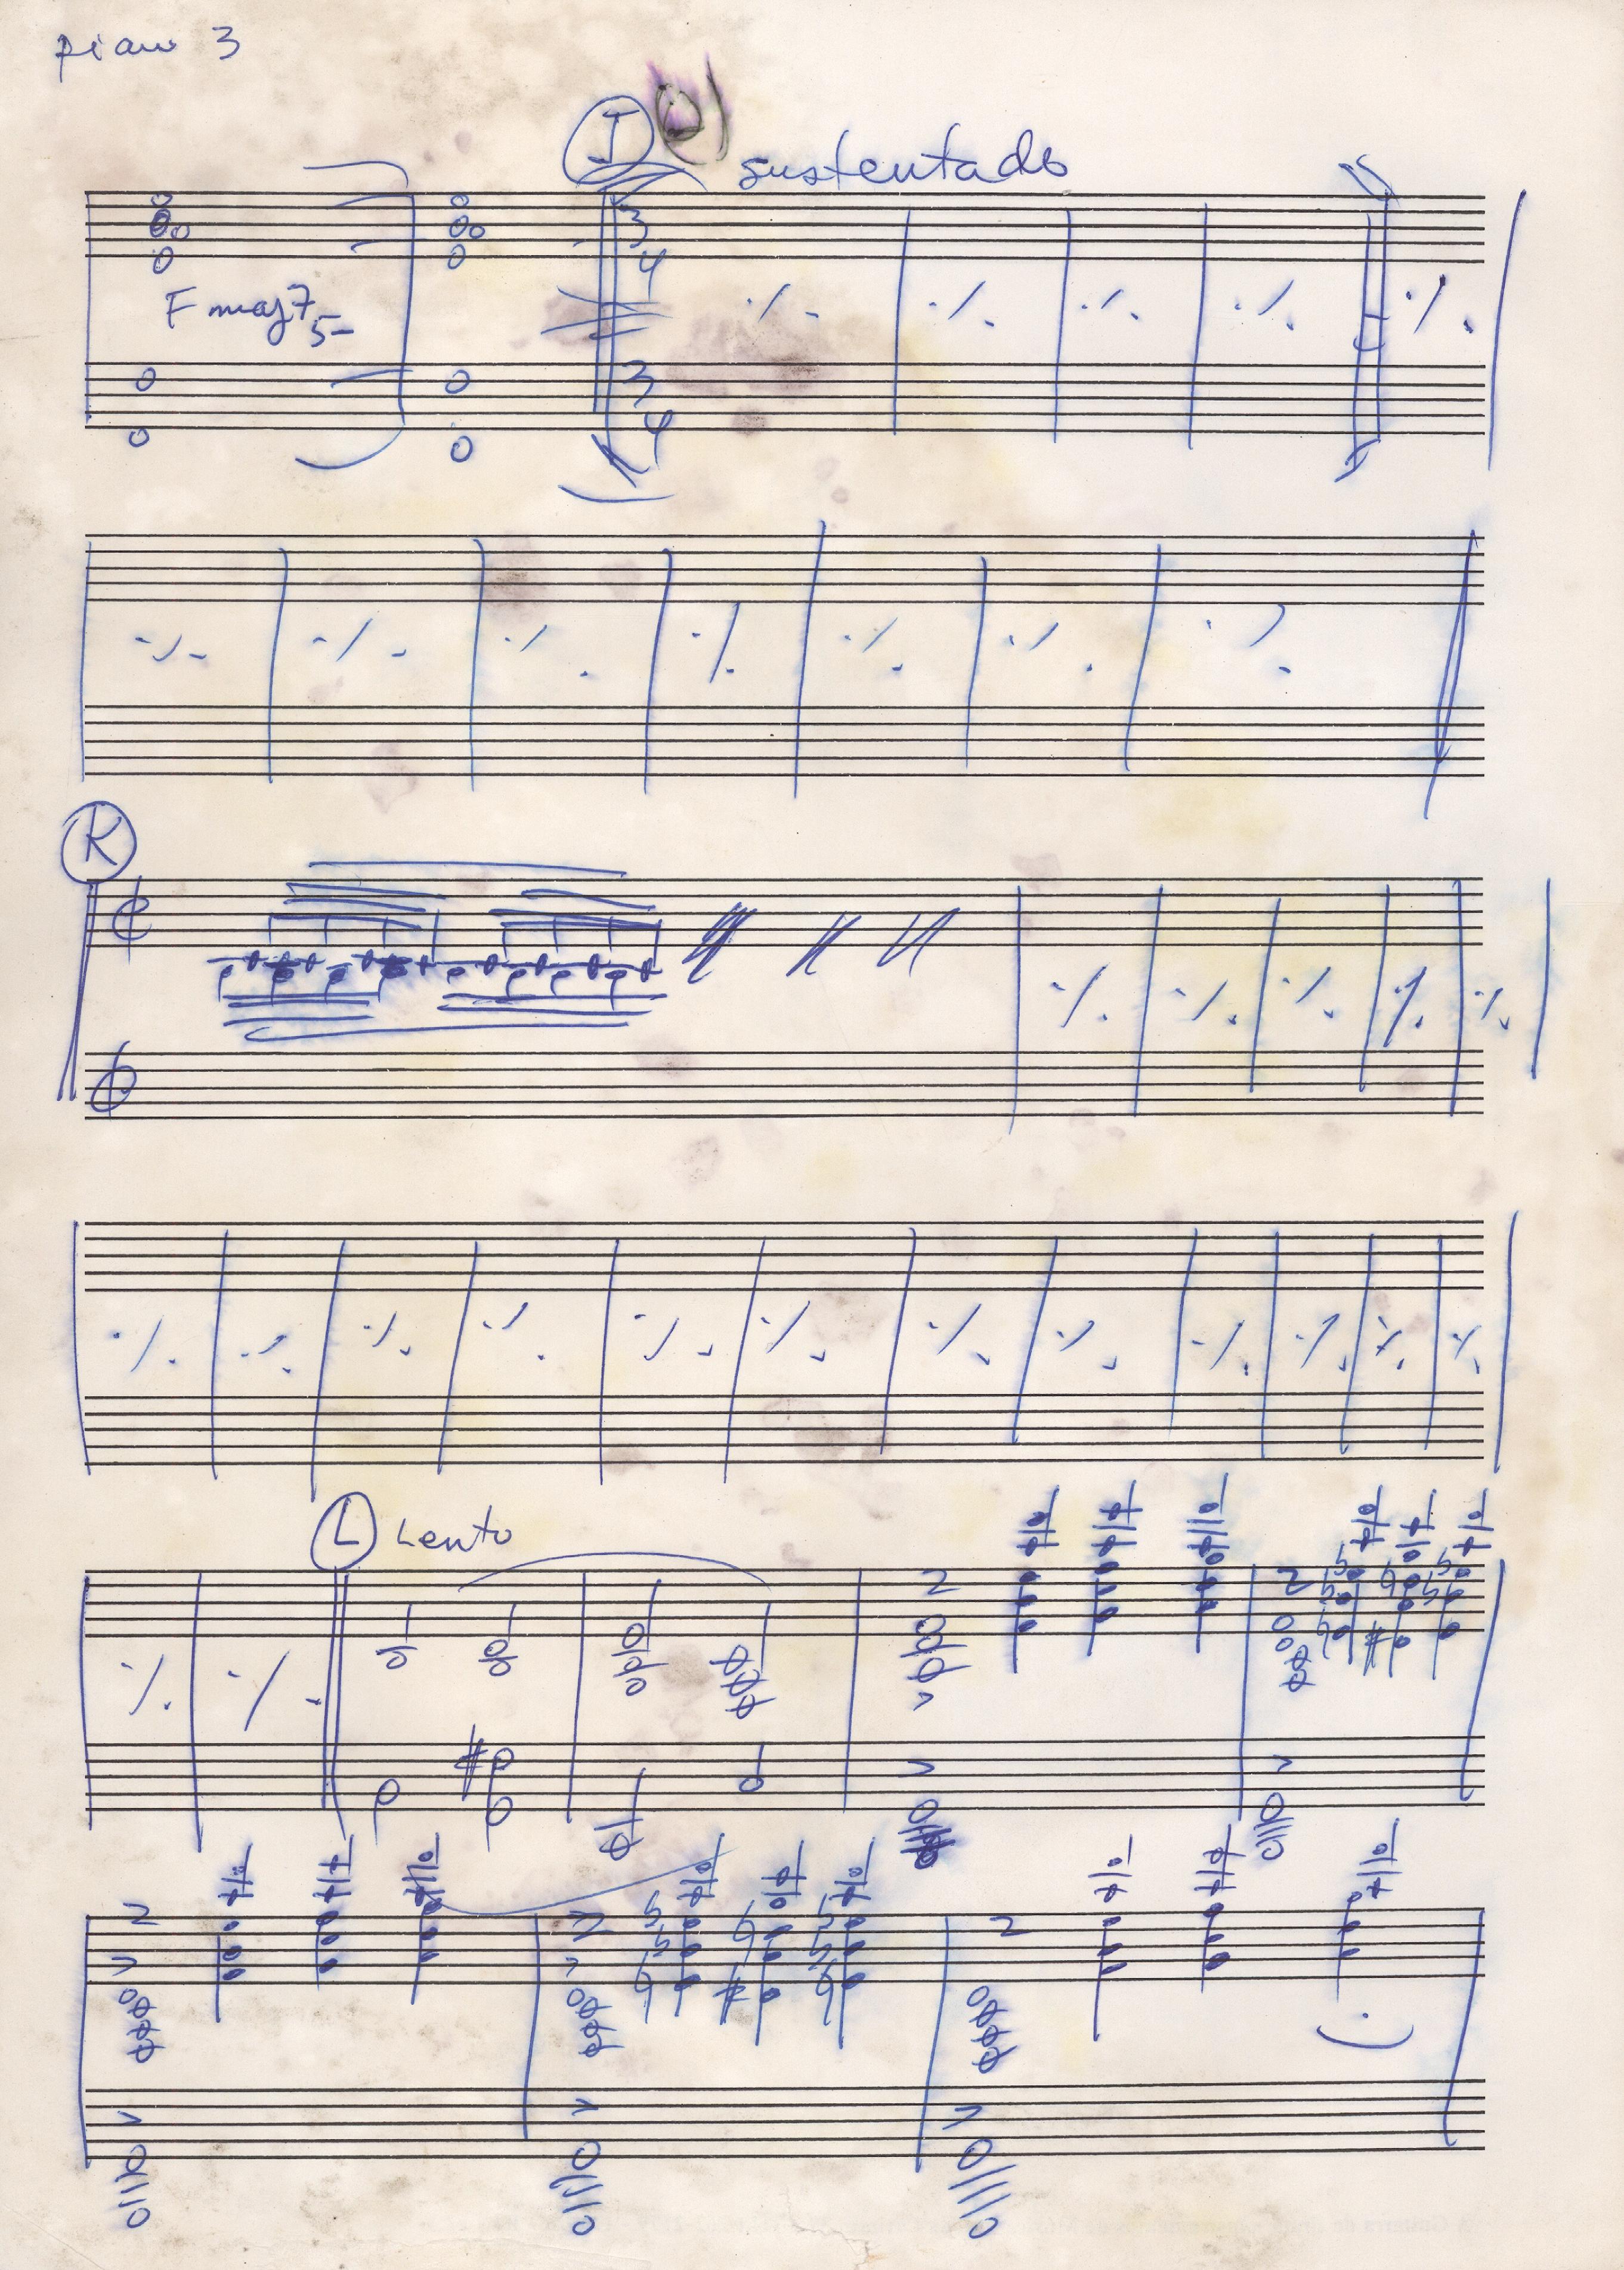 piano 3
J sustentado
3 3
4 4
F maj7 5-
K
L Lento
2 2
2 2 2